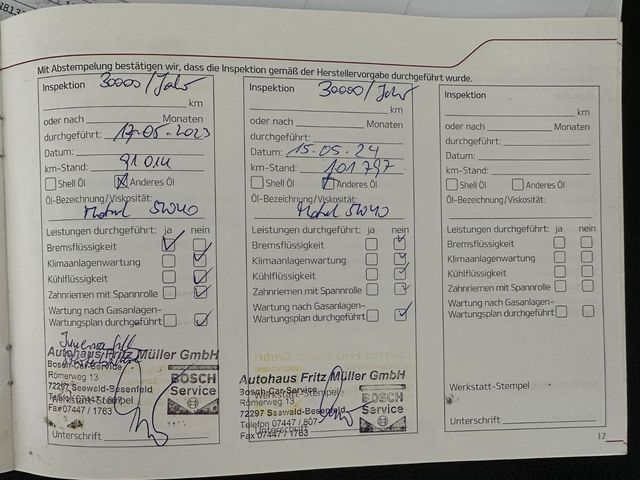 Mit Abstempelung bestätigen wir, dass die Inspektion gemäß der Herstellervorgabe durchgeführt wurde.
Inspektion 30000/Jahr
km
oder nach Monaten
durchgeführt: 17-05-2023
Datum:
km-Stand:
Shell Öl Anderes Öl
Öl-Bezeichnung/Viskosität:
Motul 5W40
Leistungen durchgeführt: ja nein
Bremsflüssigkeit
Klimaanlagenwartung
Kühlflüssigkeit
Zahnriemen mit Spannrolle
Wartung nach Gasanlagen-
Wartungsplan durchgeführt
Autohaus Fritz Müller GmbH
Bosch-Car-Service
Römerweg 13
72297 Seewald-Besenfeld
Telefon 07447 / 807
Fax 07447 / 1763
BOSCH
Service
Werkstatt-Stempel
Unterschrift
Inspektion 30000/Jahr
km
oder nach Monaten
durchgeführt:
Datum: 15-05-24
km-Stand: 101797
Shell Öl Anderes Öl
Öl-Bezeichnung/Viskosität:
Motul 5W40
Leistungen durchgeführt: ja nein
Bremsflüssigkeit
Klimaanlagenwartung
Kühlflüssigkeit
Zahnriemen mit Spannrolle
Wartung nach Gasanlagen-
Wartungsplan durchgeführt
Autohaus Fritz Müller GmbH
Bosch-Car-Service
Werkstatt-Stempel
Römerweg 13
72297 Seewald-Besenfeld
Telefon 07447 / 807
Fax 07447 / 1763
BOSCH
Service
Unterschrift
Inspektion
km
oder nach Monaten
durchgeführt:
Datum:
km-Stand:
Shell Öl Anderes Öl
Öl-Bezeichnung/Viskosität:
Leistungen durchgeführt: ja nein
Bremsflüssigkeit
Klimaanlagenwartung
Kühlflüssigkeit
Zahnriemen mit Spannrolle
Wartung nach Gasanlagen-
Wartungsplan durchgeführt
Werkstatt-Stempel
Unterschrift
17